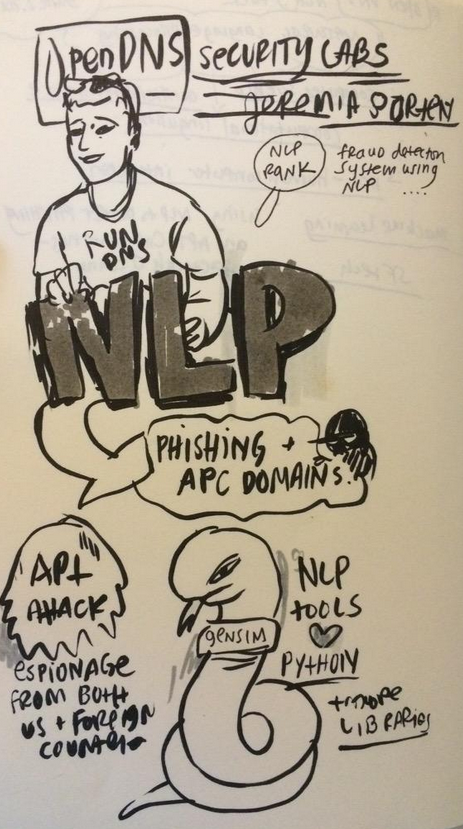 OpenDNS SECURITY LABS
JEREMIA
NLP
RANK
fraud detection
system using
NLP ....
I RUN
DNS
NLP
PHISHING +
APC DOMAINS.
APT
ATTACK
ESPIONAGE
FROM BOTH
US + FOREIGN
gENSIM
NLP
tOOLS
PYTHON
+ more
LIBRARIES